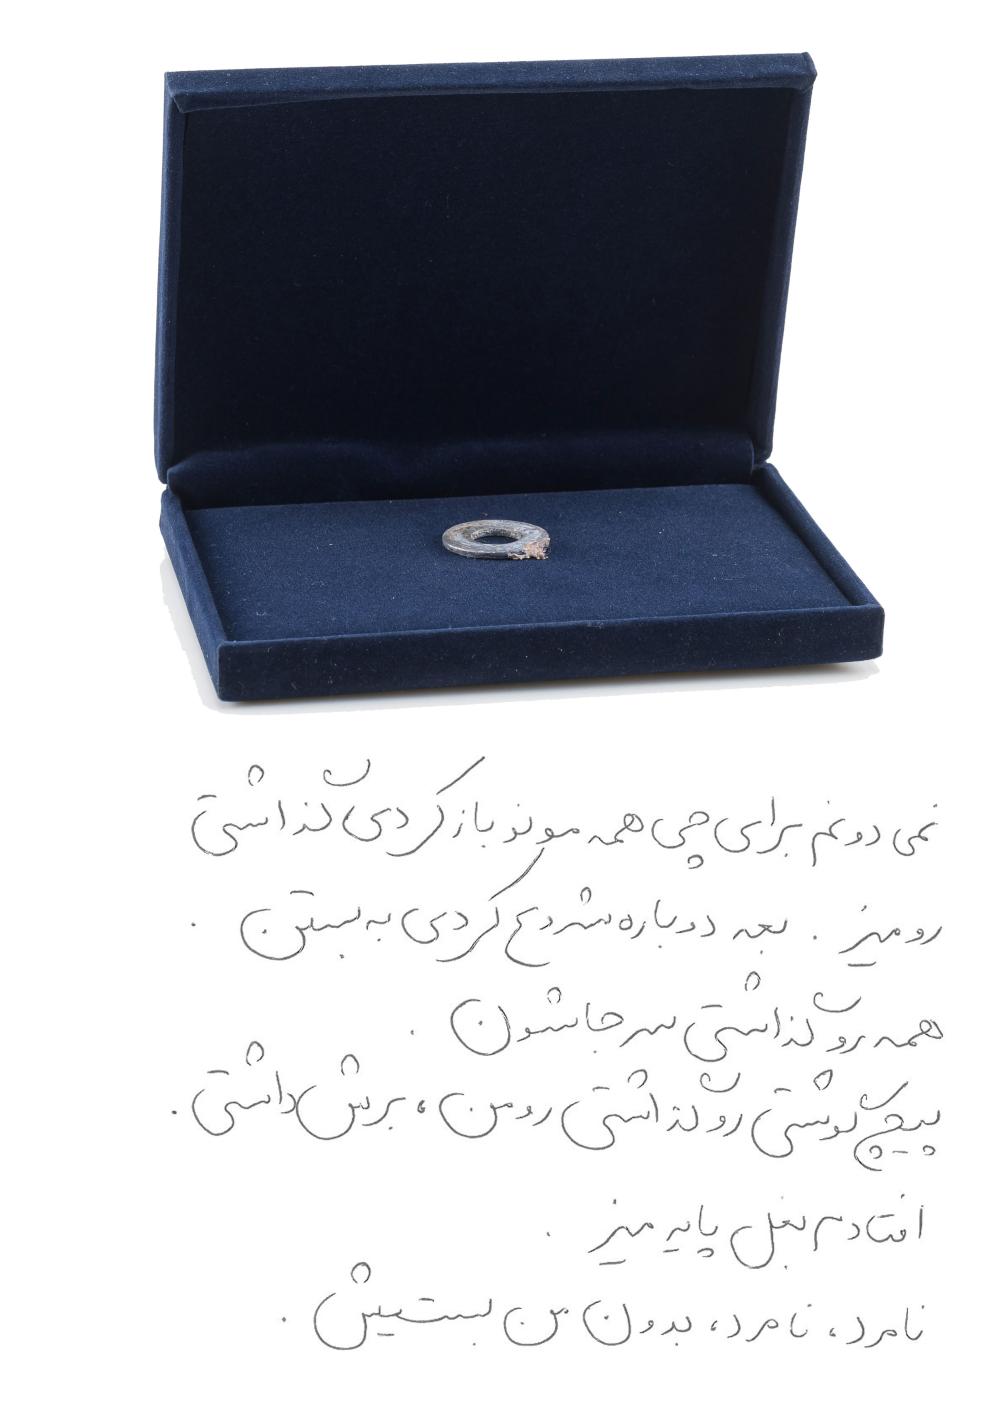 نمی دونم برای چی همه مونو باز کردی گذاشتی
رو میز . بعد دوباره شروع کردی به بستن .
همه رو گذاشتی سر جاشون .
پیچ گوشتی رو گذاشتی رو من ، برش داشتی .
افتادم بغل پایه میز .
نامرد ، نامرد ، بدون من بستیش .